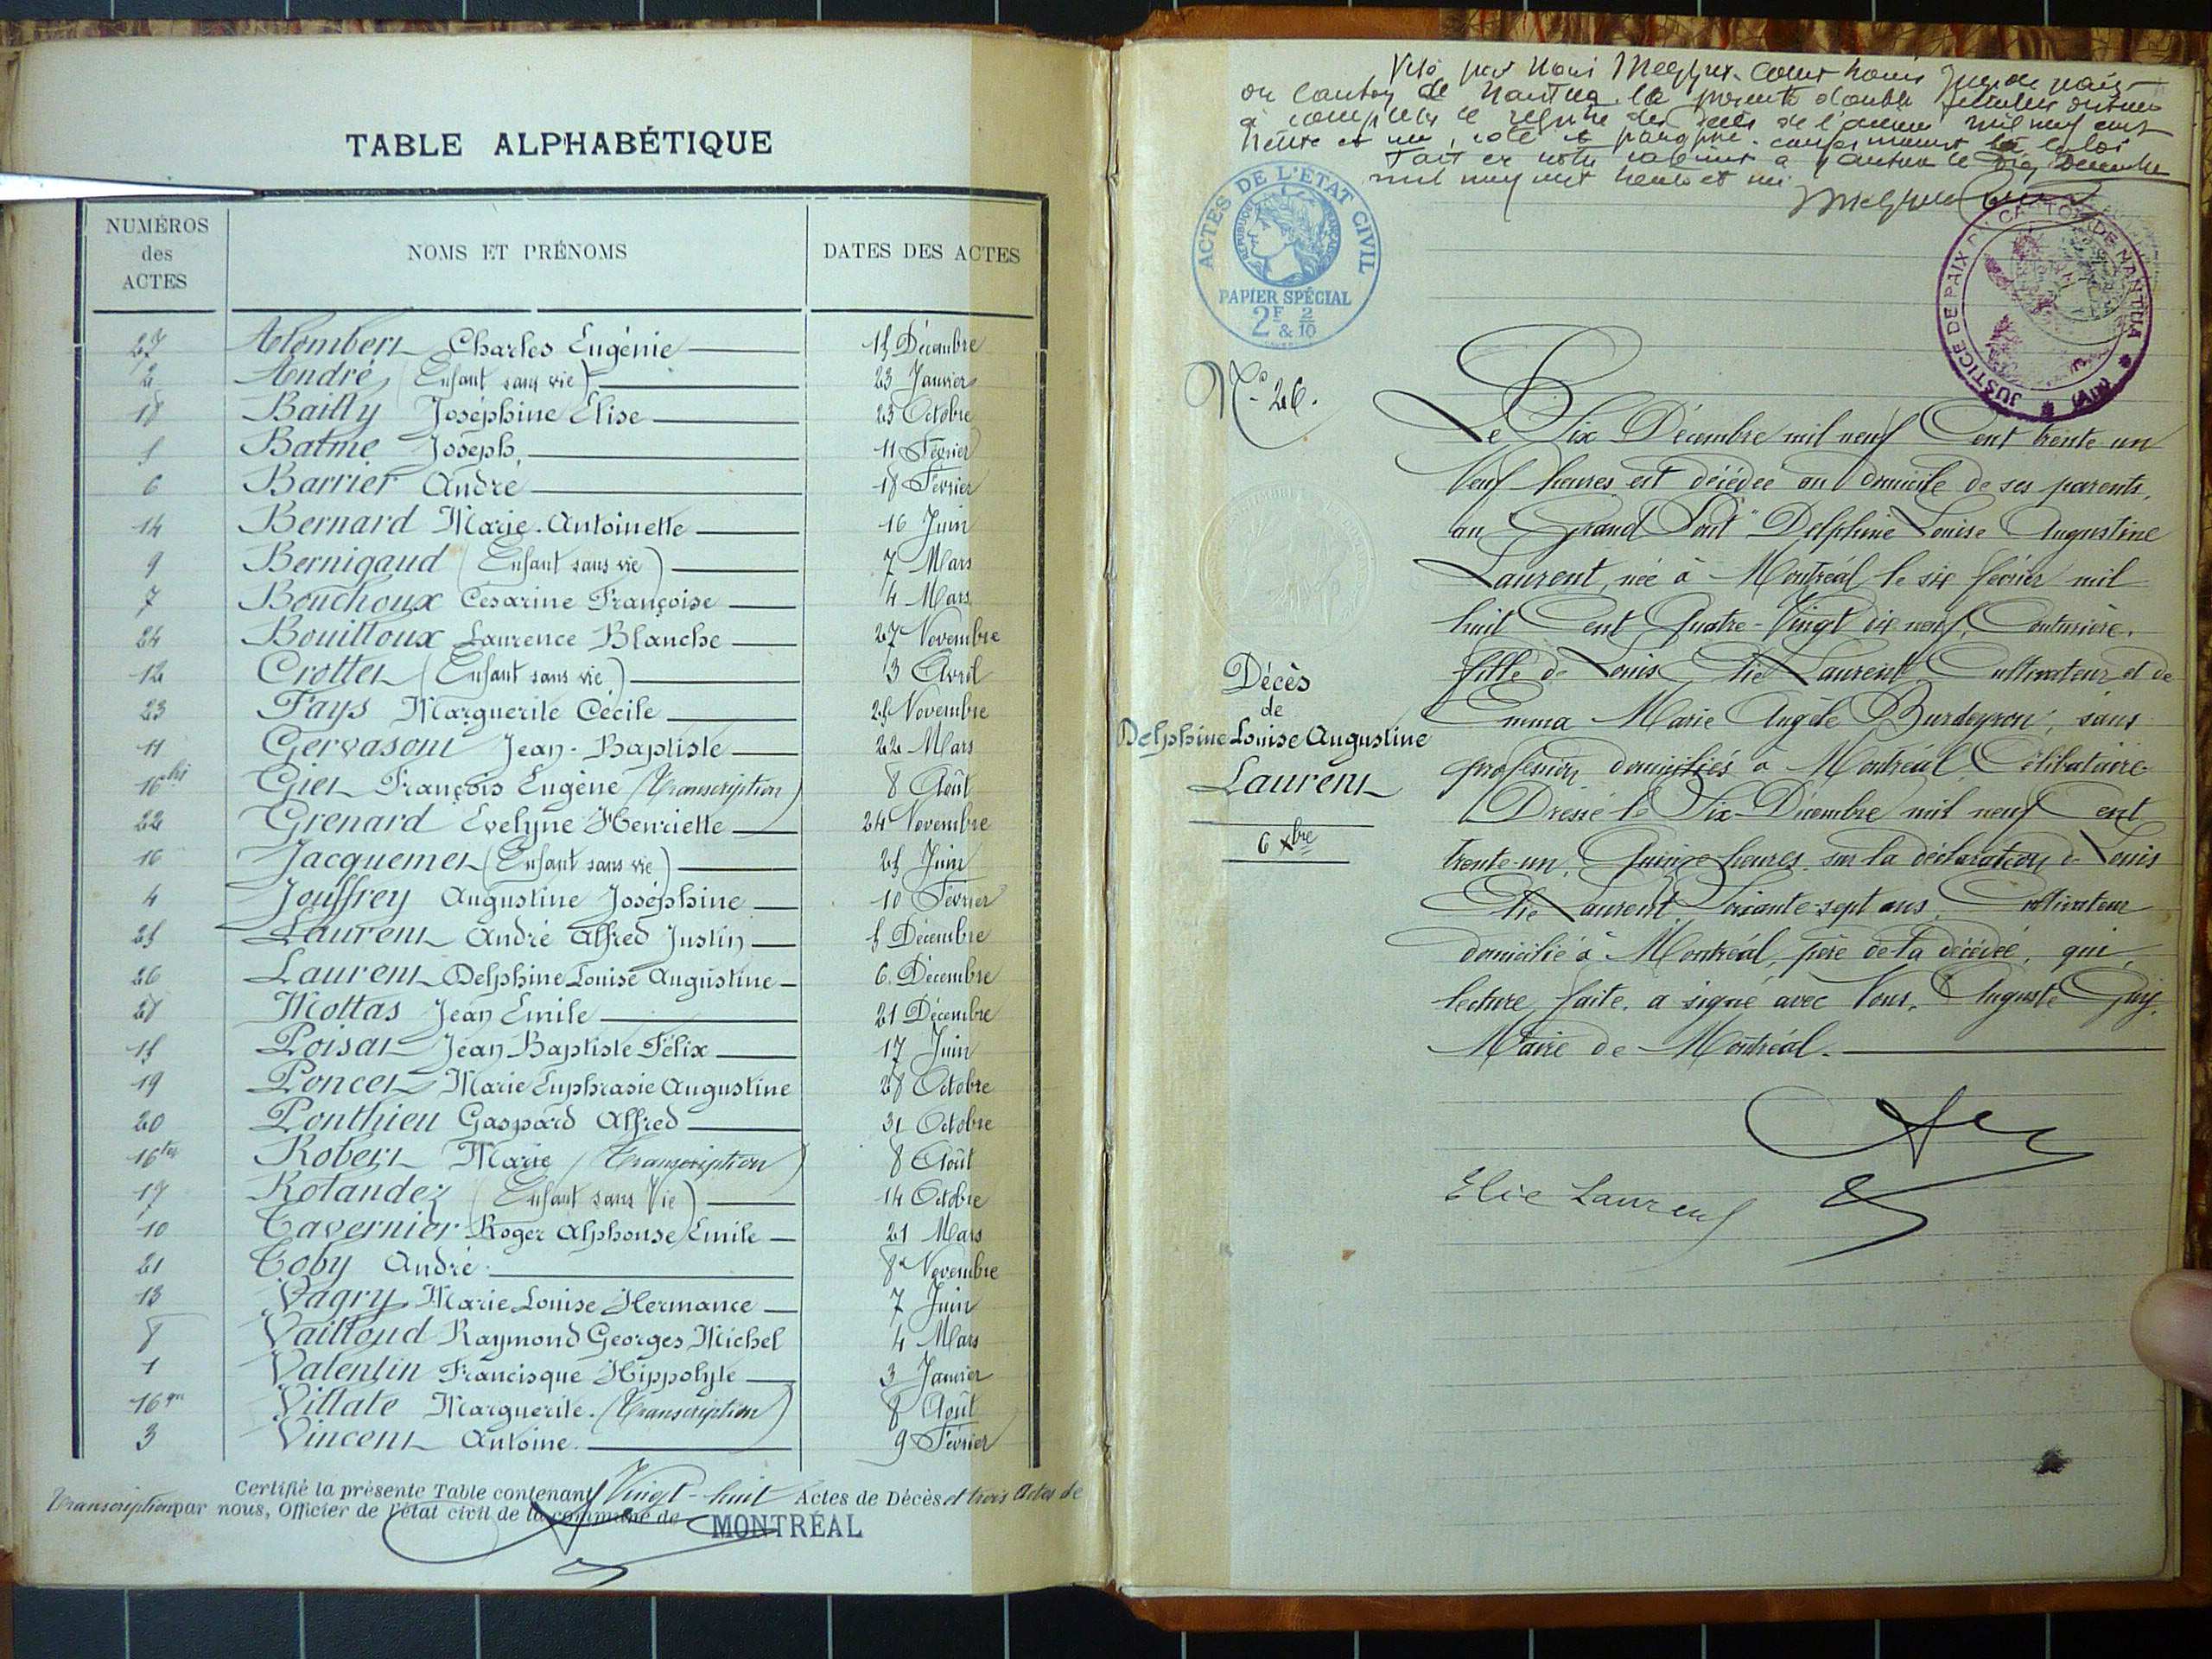 TABLE ALPHABÉTIQUE
NUMÉROS des ACTES NOMS ET PRÉNOMS DATES DES ACTES
27 Alombert Charles Eugénie 15 Décembre
2 André (Enfant sans vie) 23 Janvier
18 Bailly Joséphine Elise 23 Octobre
5 Balme Joseph 11 Février
6 Barrier André 18 Février
14 Bernard Marie-Antoinette 16 Juin
9 Bernigaud (Enfant sans vie) 7 Mars
7 Bouchoux Césarine Françoise 4 Mars
24 Bouilloux Laurence Blanche 27 Novembre
12 Crottet (Enfant sans vie) 3 Avril
23 Fays Marguerite Cécile 25 Novembre
11 Gervasoni Jean-Baptiste 22 Mars
16 bis Giet François Eugène (Transcription) 8 Août
22 Grenard Evelyne Henriette 24 Novembre
16 Jacquemet (Enfant sans vie) 25 Juin
4 Jouffrey Augustine Joséphine 10 Février
25 Laurent André Alfred Justin 5 Décembre
26 Laurent Delphine Louise Augustine 6 Décembre
28 Mottas Jean Emile 21 Décembre
15 Poisat Jean Baptiste Félix 17 Juin
19 Poncet Marie Euphrasie Augustine 28 Octobre
20 Ponthieu Gaspard Alfred 31 Octobre
16 ter Robert Marie (Transcription) 8 Août
17 Rolandez (Enfant sans Vie) 14 Octobre
10 Tavernier Roger Alphonse Emile 21 Mars
21 Toby André 8 Novembre
13 Vagry Marie Louise Hermance 7 Juin
8 Vailloud Raymond Georges Michel 4 Mars
1 Valentin Francisque Hippolyte 3 Janvier
16 Villate Marguerite (Transcription) 8 Août
3 Vincent Antoine 9 Février
Certifié la présente Table contenant Vingt-huit Actes de Décès et trois Actes de
Transcription par nous, Officier de l'état civil de la commune de MONTRÉAL
Visé par nous Juge de paix
du canton de Nantua la présente double feuille destinée
à compléter le registre des décès de l'année mil neuf cent
trente et un, coté et paraphé conformément à la loi
Fait en notre cabinet à Nantua le Décembre
mil neuf cent trente et un
ACTES DE L'ÉTAT CIVIL
RÉPUBLIQUE FRANÇAISE
PAPIER SPÉCIAL
2F & 2/10
JUSTICE DE PAIX DU CANTON DE NANTUA * (AIN) *
N° 26.
Décès
de
Delphine Louise Augustine
Laurent
6 Xbre
Le Six Décembre mil neuf Cent trente un
Neuf heures est décédée au domicile de ses parents,
au "Grand Pont" Delphine Louise Augustine
Laurent, née à Montréal le six février mil
huit Cent Quatre-Vingt dix neuf, Couturière,
fille de Louis Elie Laurent Cultivateur et de
Emma Marie Angèle Burdeyron, sans
profession domiciliés à Montréal, Célibataire
Dressé le Six Décembre mil neuf Cent
trente-un, Quinze heures, sur la déclaration de Louis
Elie Laurent, Soixante-sept ans, Cultivateur
domicilié à Montréal, père de la décédée, qui,
lecture faite, a signé avec Nous, Auguste Guy,
Maire de Montréal.
Elie Laurent